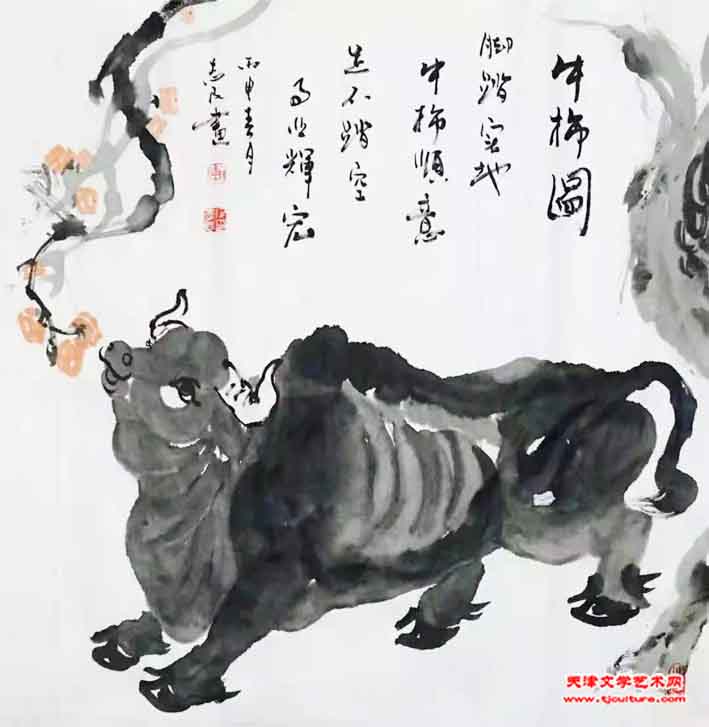 牛柿圖
脚踏实地
牛柿順意
不踏空
事业輝宏
丙申春月
志畫
天津文学艺术网
www.tjculture.com